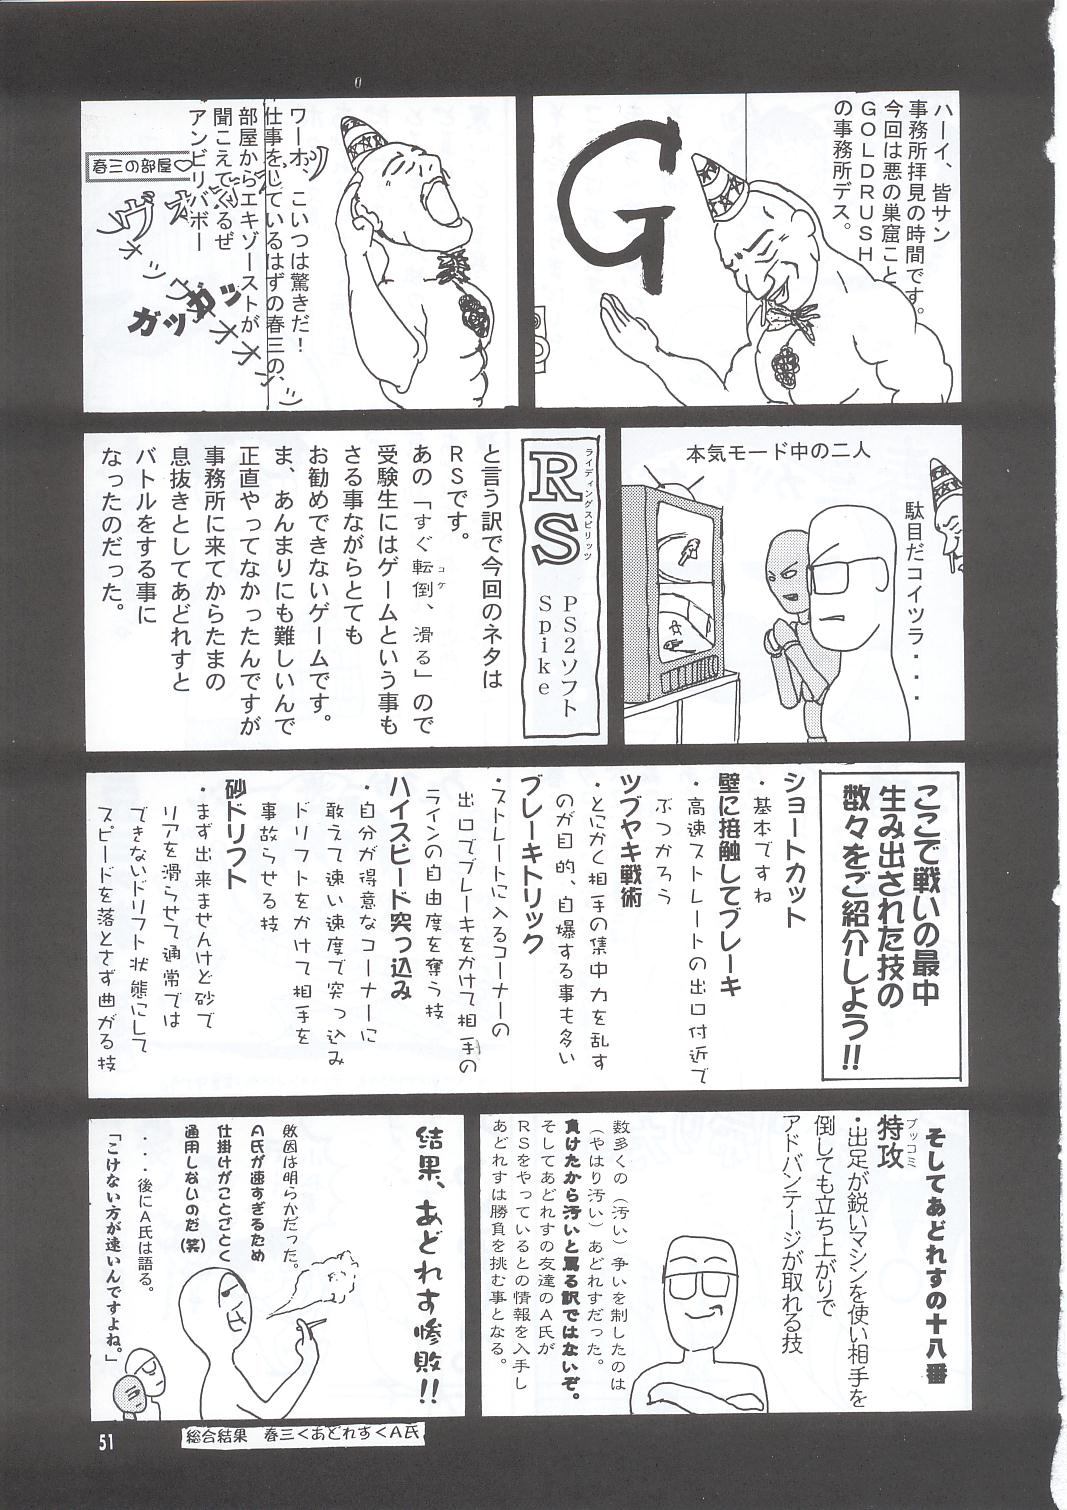 ハーイ、皆サン
事務所拝見の時間です。
今回は悪の巣窟こと
GOLDRUSH
の事務所デス。
G
ワーホ、こいつは驚きだ！
仕事をしているはずの春三の、
部屋からエキゾーストが
聞こえてくるぜ
アンビリバボー
春三の部屋♡
ガッガッ
本気モード中の二人
駄目だコイツラ・・・
ライディングスピリッツ
RS
PS2ソフト
Spike
と言う訳で今回のネタは
RSです。
あの「すぐ転倒、滑る」ので
コケ
受験生にはゲームという事も
さる事ながらとても
お勧めできないゲームです。
ま、あんまりにも難しいんで
正直やってなかったんですが
事務所に来てからたまの
息抜きとしてあどれすと
バトルをする事に
なったのだった。
ここで戦いの最中
生み出された技の
数々をご紹介しよう!!
ショートカット
・基本ですね
壁に接触してブレーキ
・高速ストレートの出口付近で
ぶつかろう
ツブヤキ戦術
・とにかく相手の集中力を乱す
のが目的、自爆する事も多い
ブレーキトリック
・ストレートに入るコーナーの
出口でブレーキをかけて相手の
ラインの自由度を奪う技
ハイスピード突っ込み
・自分が得意なコーナーに
敢えて速い速度で突っ込み
ドリフトをかけて相手を
事故らせる技
砂ドリフト
・まず出来ませんけど砂で
リアを滑らせて通常では
できないドリフト状態にして
スピードを落とさず曲がる技
そしてあどれすの十八番
ブッコミ
特攻
・出足が鋭いマシンを使い相手を
倒しても立ち上がりで
アドバンテージが取れる技
数多くの（汚い）争いを制したのは
（やはり汚い）あどれすだった。
負けたから汚いと罵る訳ではないぞ。
そしてあどれすの友達のA氏が
RSをやっているとの情報を入手し
あどれすは勝負を挑む事となる。
結果、あどれす惨敗!!
敗因は明らかだった。
A氏が速すぎるため
仕掛けがことごとく
通用しないのだ（笑）
・・・後にA氏は語る。
「こけない方が速いんですよね。」
総合結果　春三くあどれすくA氏
51